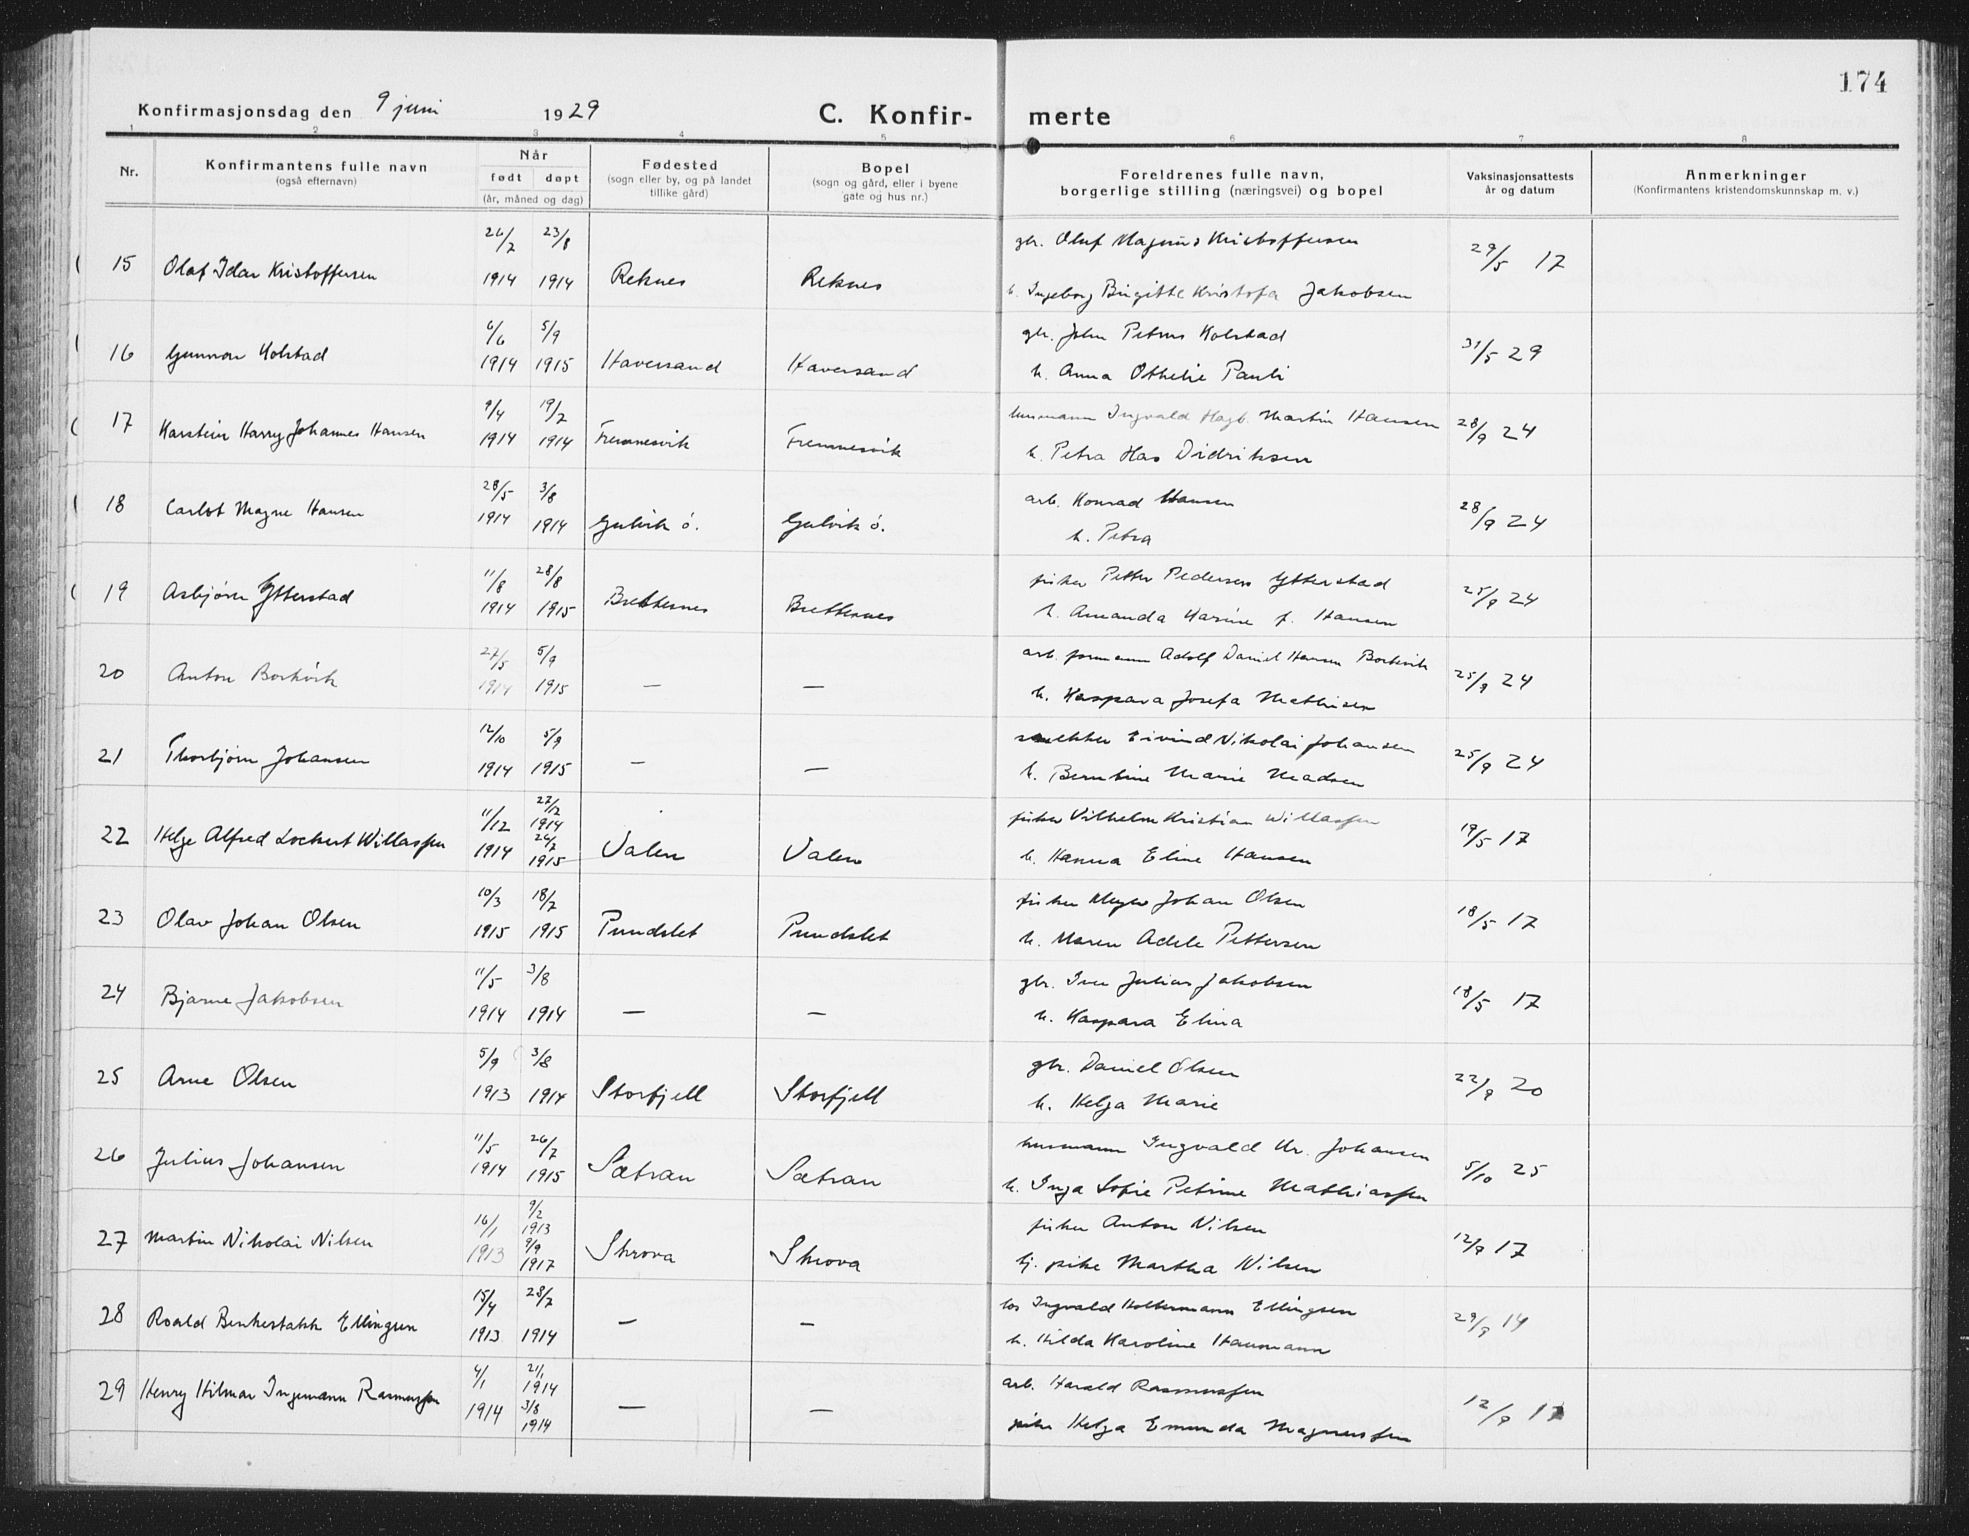 174
Konfirmasjonsdag den 9 juni 1929 C. Konfir- merte
1 2 3 4 5 6 7 8
Nr. Konfirmantens fulle navn (også efternavn) Når født døpt (år, måned og dag) Fødested (sogn eller by, og på landet tillike gård) Bopel (sogn og gård, eller i byene gate og hus nr.) Foreldrenes fulle navn, borgerlige stilling (næringsvei) og bopel Vaksinasjonsattests år og datum Anmerkninger (Konfirmantens kristendomskunnskap m. v.)
15 Olaf Idar Kristoffersen 26/7 1914 23/8 1914 Reknes Reknes gbr. Oluf Magnus Kristoffersen 29/5 17
h. Ingeborg Birgitte Kristofa Jakobsen
16 Gunnar Kolstad 6/6 1914 5/9 1915 Haversand Haversand gbr. John Petrus Kolstad 31/5 29
h. Anna Othelie Pauli
17 Karstein Harry Johannes Hansen 9/4 1914 19/7 1914 Fremnesvik Fremnesvik husmann Ingvald Hagb. Martin Hansen 28/9 24
h. Petra Didriksen
18 Carlot Magne Hansen 28/5 1914 3/8 1914 Gulvik ö. Gulvik ö. arb. Konrad Hansen 28/9 24
h. Petra
19 Asbjörn Ytterstad 11/8 1914 28/8 1915 Brettesnes Brettesnes fisker Petter Pedersen Ytterstad 25/9 24
h. Amanda Karine f. Hansen
20 Anton Borkvik 27/5 1914 5/9 1915 — — arb. formann Adolf Daniel Hansen Borkvik 25/9 24
h. Kaspara Josefa Mathisen
21 Thorbjörn Johansen 12/10 1914 5/9 1915 — — snekker Eivind Nikolai Johansen 25/9 24
h. Berntine Marie Madsen
22 Helge Alfred Lockert Willassen 11/12 1914 27/12 1914 26/7 1915 Valen Valen fisker Vilhelm Kristian Willassen 19/5 17
h. Hanna Eline Hansen
23 Olav Johan Olsen 10/3 1915 18/7 1915 Pundslet Pundslet fisker Meyer Johan Olsen 18/5 17
h. Maren Adele Pettersen
24 Bjarne Jakobsen 11/5 1914 3/8 1914 — — gbr. Iver Julius Jakobsen 18/5 17
h. Kaspara Elina
25 Arne Olsen 5/9 1913 3/8 1914 Storfjell Storfjell gbr. Daniel Olsen 22/9 20
h. Helga Marie
26 Julius Johansen 11/5 1914 26/7 1915 Sætran Sætran husmann Ingvald Kr. Johansen 5/10 25
h. Inga Sofie Petrine Mathiassen
27 Martin Nikolai Nilsen 16/1 1913 9/2 1913 9/9 1917 Skrova Skrova fisker Anton Nilsen 12/9 17
hj. pike Martha Nilsen
28 Roald Benkestakk Ellingsen 15/4 1913 28/7 1914 — — los Ingvald Holtermann Ellingsen 29/9 14
h. Hilda Karoline Hausmann
29 Henry Hilmar Ingemann Rasmussen 4/1 1914 21/1 1914 3/8 1914 — — arb. Harald Rasmussen 12/9 17
pike Helga Emunda Magnussen